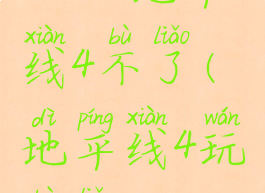 xiàn bù liǎo
线4不了(
dì píng xiàn wán
地平线4玩